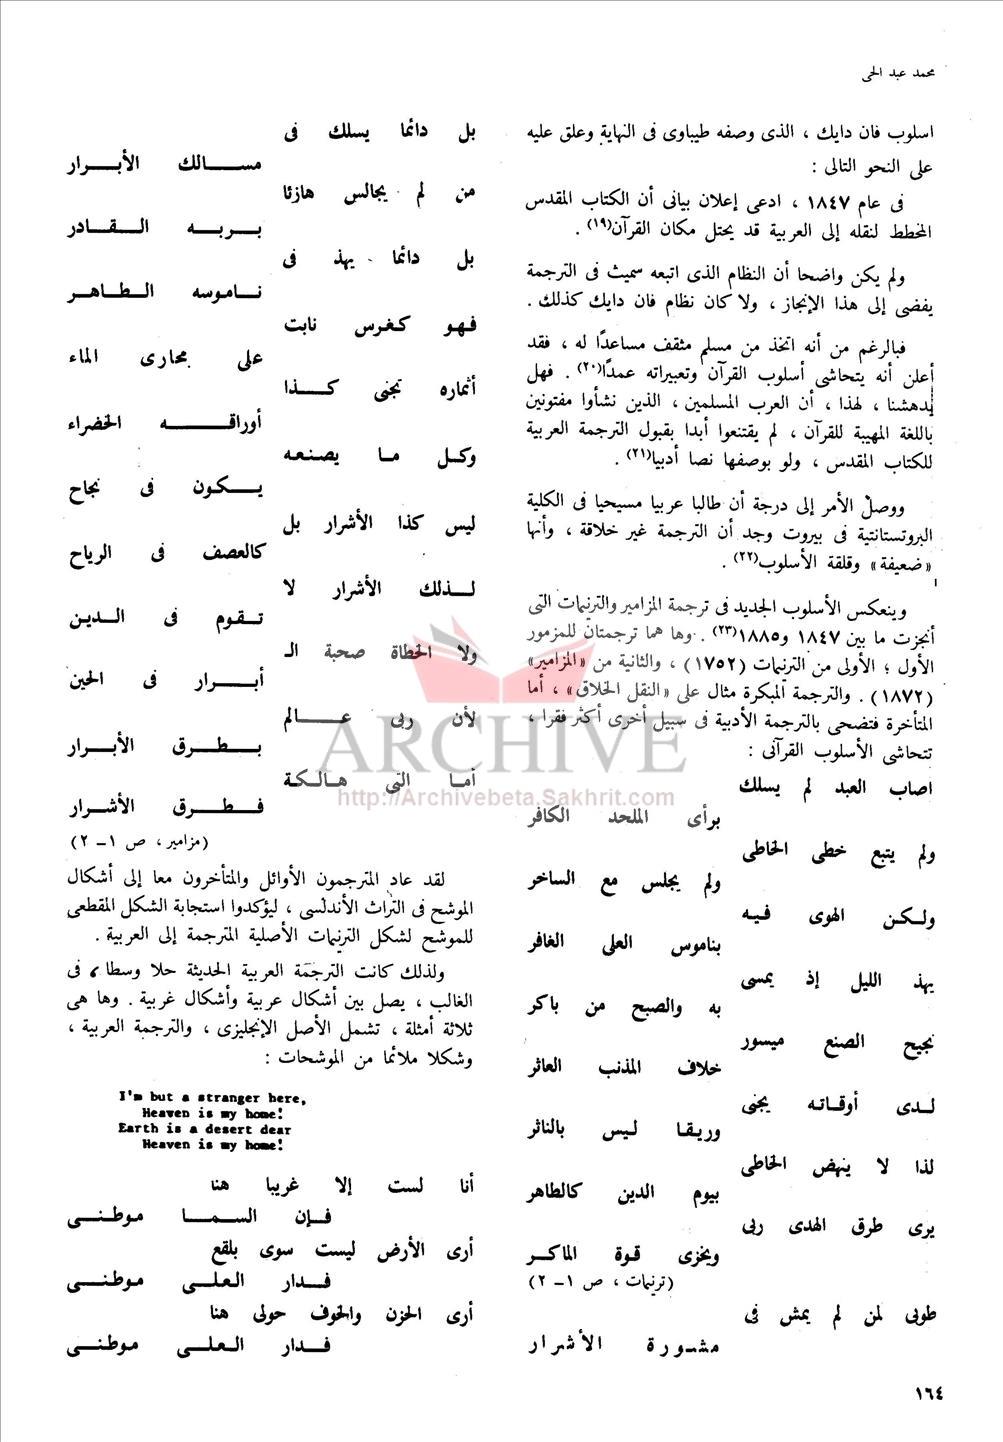 محمد عبد الحى
اسلوب فان دايك ، الذى وصفه طيباوى فى النهاية وعلق عليه
على النحو التالى :
فى عام ١٨٤٧ ، ادعى إعلان بيانى أن الكتاب المقدس
المخطط لنقله إلى العربية قد يحتل مكان القرآن(١٩) .
ولم يكن واضحا أن النظام الذى اتبعه سميث فى الترجمة
يفضى إلى هذا الإنجاز ، ولا كان نظام فان دايك كذلك .
فبالرغم من أنه اتخذ من مسلم مثقف مساعدًا له ، فقد
أعلن أنه يتحاشى أسلوب القرآن وتعبيراته عمدًا(٢٠) . فهل
يدهشنا ، لهذا ، أن العرب المسلمين ، الذين نشأوا مفتونين
باللغة المهيبة للقرآن ، لم يقتنعوا أبدا بقبول الترجمة العربية
للكتاب المقدس ، ولو بوصفها نصا أدبيا(٢١) .
ووصل الأمر إلى درجة أن طالبا عربيا مسيحيا فى الكلية
البروتستانتية فى بيروت وجد أن الترجمة غير خلاقة ، وأنها
«ضعيفة» وقلقة الأسلوب(٢٢) .
وينعكس الأسلوب الجديد فى ترجمة المزامير والترنيمات التى
أنجزت ما بين ١٨٤٧ و١٨٨٥(٢٣) . وها هما ترجمتان للمزمور
الأول ؛ الأولى من الترنيمات (١٧٥٢) ، والثانية من «المزامير»
(١٨٧٢) . والترجمة المبكرة مثال على «النقل الخلاق» ، أما
المتأخرة فتضحى بالترجمة الأدبية فى سبيل أخرى أكثر فقرا ،
تتحاشى الأسلوب القرآنى :
اصاب العبد لم يسلك
برأى الملحد الكافر
ولم يتبع خطى الخاطى
ولم يجلس مع الساخر
ولكن الهوى فيه
بناموس العلى الغافر
يهذ الليل إذ يمسى
به والصبح من باكر
نجيح الصنع ميسور
خلاف المذنب العاثر
لدى أوقاته يجنى
وريقا ليس بالناثر
لذا لا ينهض الخاطى
بيوم الدين كالطاهر
يرى طرق الهدى ربى
ويخزى قوة الماكر
(ترنيمات ، ص ١ - ٢)
طوبى لمن لم يمش فى
مشورة الأشرار
بل دائما يسلك فى
مسالك الأبرار
من لم يجالس هازئا
بربه القادر
بل دائما يهذ فى
ناموسه الطاهر
فهو كغرس نابت
على مجارى الماء
أثماره تجنى كذا
أوراقه الخضراء
وكل ما يصنعه
يكون فى نجاح
ليس كذا الأشرار بل
كالعصف فى الرياح
لذلك الأشرار لا
تقوم فى الدين
ولا الخطاة صحبة الـ
أبرار فى الحين
لأن ربى عالم
بطرق الأبرار
أما التى هالكة
فطرق الأشرار
(مزامير ، ص ١ - ٢)
لقد عاد المترجمون الأوائل والمتأخرون معا إلى أشكال
الموشح فى التراث الأندلسى ، ليؤكدوا استجابة الشكل المقطعى
للموشح لشكل الترنيمات الأصلية المترجمة إلى العربية .
ولذلك كانت الترجمة العربية الحديثة حلا وسطا ، فى
الغالب ، يصل بين أشكال عربية وأشكال غربية . وها هى
ثلاثة أمثلة ، تشمل الأصل الإنجليزى ، والترجمة العربية ،
وشكلا ملائما من الموشحات :
I'm but a stranger here,
Heaven is my home!
Earth is a desert dear
Heaven is my home!
أنا لست إلا غريبا هنا
فإن السما موطنى
أرى الأرض ليست سوى بلقع
فدار العلى موطنى
أرى الحزن والخوف حولى هنا
فدار العلى موطنى
١٦٤
ARCHIVE
http://Archivebeta.Sakhrit.com